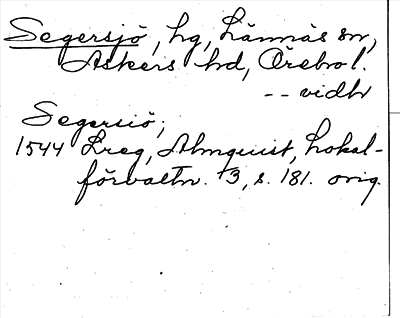 Segersjö, hg, Lännäs sn,
Askers hd, Örebro l.
-- vidh
Segersiö;
1544 Lreg, Almquist, Lokal-
förvaltn. 3, s. 181. orig.